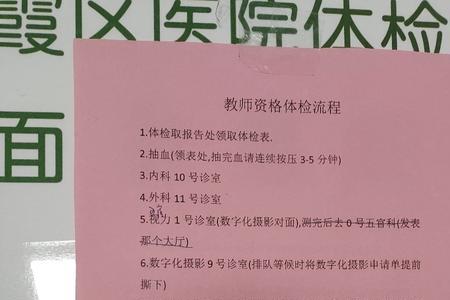 霞区医院体检
面
教师资格体检流程
1.体检取报告处领取体检表.
2.抽血(领表处,抽完血请连续按压 3-5 分钟)
3.内科 10 号诊室
4.外科 11 号诊室
5.视力 1 号诊室(数字化摄影对面),测完后去 0 号五官科(发表
那个大厅)
6.数字化摄影 9 号诊室(排队等候时将数字化摄影申请单提前
撕下)